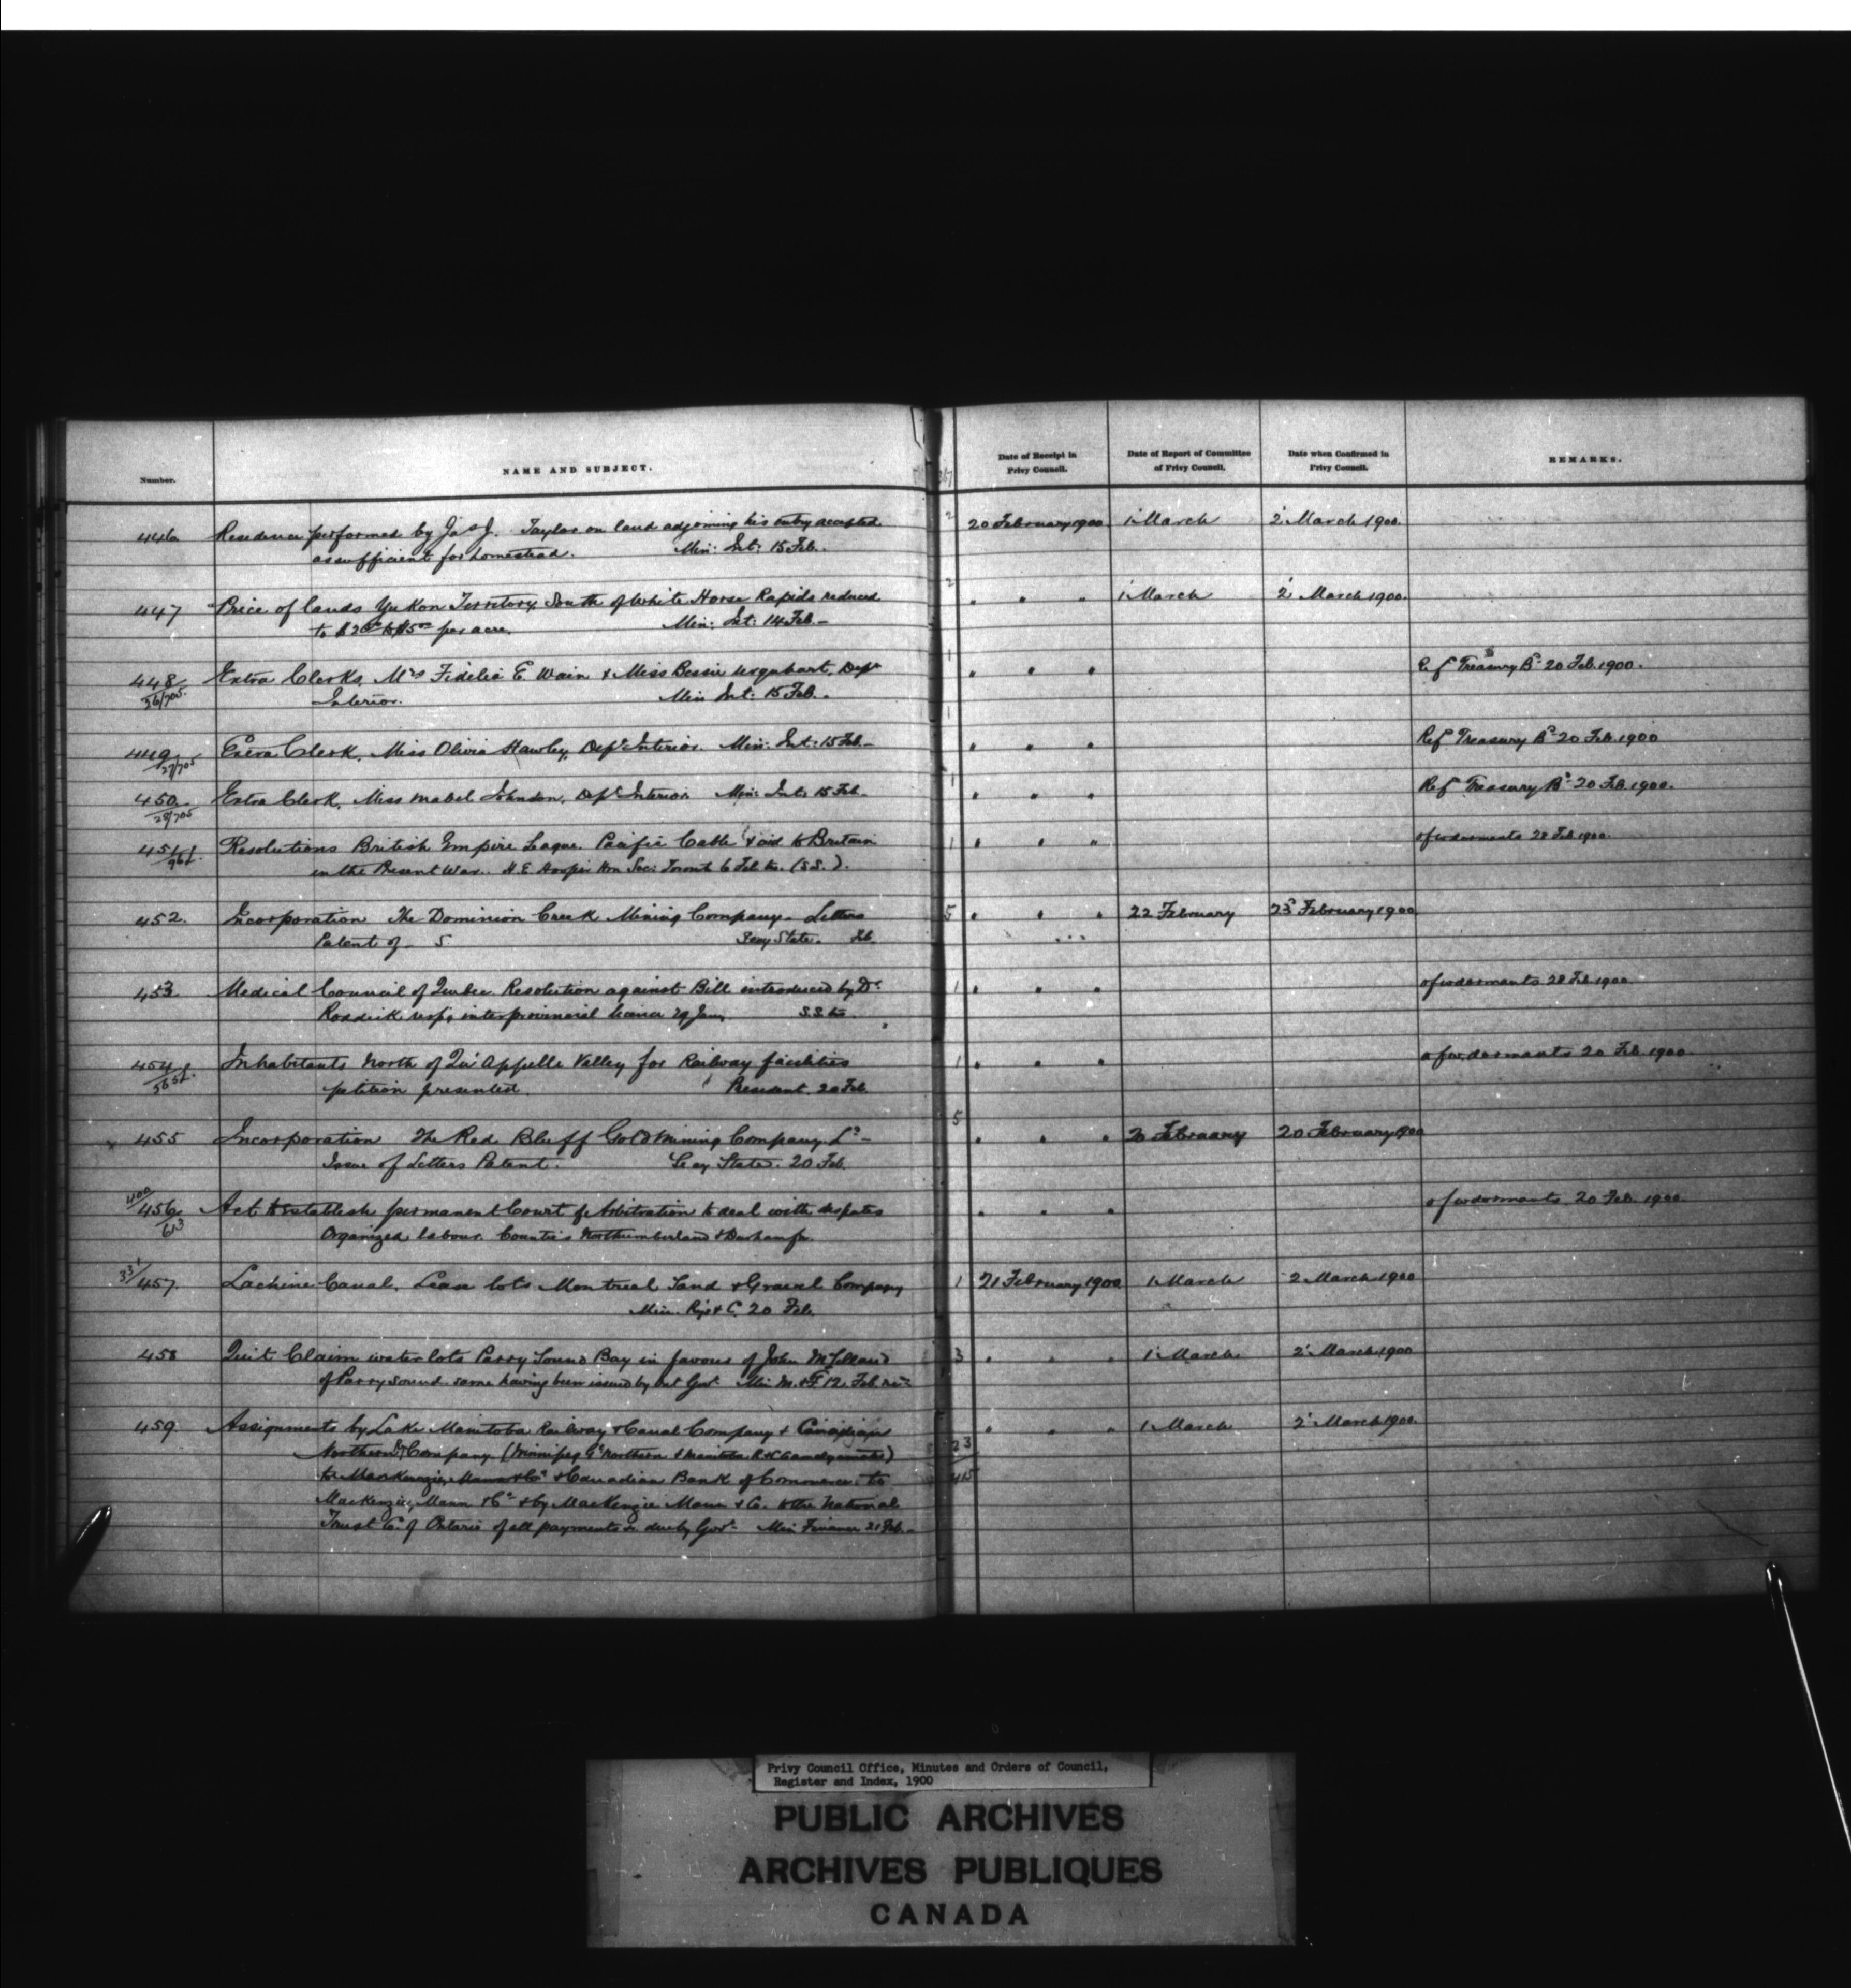 Number.
NAME AND SUBJECT.
Date of Receipt in
Privy Council.
Date of Report of Committee
of Privy Council.
Date when Confirmed in
Privy Council.
REMARKS.
446 Residence performed by Jas J. Taylor on land adjoining his entry accepted 2 20 February 1900 1 March 2 March 1900.
as sufficient for homestead. Min: Int: 15 Feb.
447 Price of lands Yukon Territory South of White Horse Rapids reduced 2 " " " 1 March 2 March 1900.
to per acre. Min: Int: 14 Feb -
448 Extra Clerks, Mrs Fidelia E Wain & Miss Bessie Urquhart, Dept 1 " " " Ref Treasury Bd 20 Feb. 1900.
26/705 Interior. Min Int: 15 Feb. -
449 Extra Clerk, Miss Olivia Hawley, Dept Interior. Min: Int: 15 Feb - 1 " " " Ref Treasury Bd 20 Feb. 1900
27/705
450 Extra Clerk, Miss Mabel Johnson, Dept Interior Min: Int: 15 Feb. 1 " " " Ref Treasury Bd 20 Feb. 1900.
28/705
451 Resolutions British Empire League. Pacific Cable & aid to Britain 1 " " " of wdormants 28 Feb 1900.
in the Present War. H. E Hooper Hon Sec: Toronto 6 Feb (S.S.).
452. Incorporation The Dominion Creek Mining Company - Letters 5 " " " 22 February 23 February 1900
Patent of - 5 Secy State. Feb.
453 Medical Council of Quebec Resolution against Bill introduced by Dr 1 " " " 28 Feb 1900
Roddick resp. interprovincial 29 Jany S.S.
454 Inhabitants North of Qu'Appelle Valley for Railway facilities 1 " " " 20 Feb 1900.
petition presented. President 20 Feb.
455 Incorporation The Red Bluff Gold Mining Company Ld - 5 " " " 20 February 20 February 1900
Issue of Letters Patent. Secy State. 20 Feb.
400/456 Act to establish permanent Court of Arbitration to deal with disputes " " " 20 Feb. 1900
613 Organized labour. Counties Northumberland & Durham
331/457. Lachine Canal. Lease lots Montreal Sand & Gravel Company 1 21 February 1900 1 March 2 March 1900
Min. Rys & C. 20 Feb.
458 Quit Claim water lots Parry Sound Bay in favour of John McClelland 3 " " " 1 March 2 March 1900
of Parry Sound same having been issued by Ont Govt. Min M. & F 12 Feb.
459 Assignments by Lake Manitoba Railway & Canal Company & Canadian " " " 1 March 2 March 1900.
Northern Ry Company (Winnipeg Gt Northern & Manitoba 23
to Mackenzie, Mann & Co & Canadian Bank of Commerce to 45
Mackenzie, Mann & Co & by Mackenzie Mann & Co. to the National
Trust Co. of Ontario of all payments due by Govt. Min Finance 21 Feb. -
Privy Council Office, Minutes and Orders of Council,
Register and Index, 1900
PUBLIC ARCHIVES
ARCHIVES PUBLIQUES
CANADA